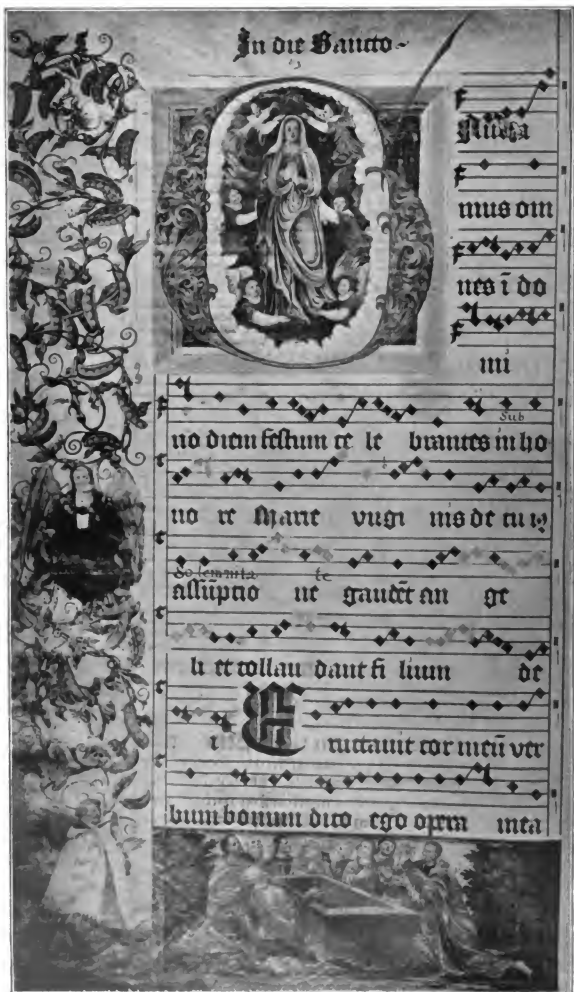 In die Sancto
Gaudea
mus om
nes ī do
mi
no diem festum ce le brantes in ho
Sub
no re Marie virgi nis de cuiꝯ
Solemnita te
assūptio ne gaudēt an ge
li et collau dant fi lium de
i Eructauit cor meū ver
bum bonum dico ego opera mea